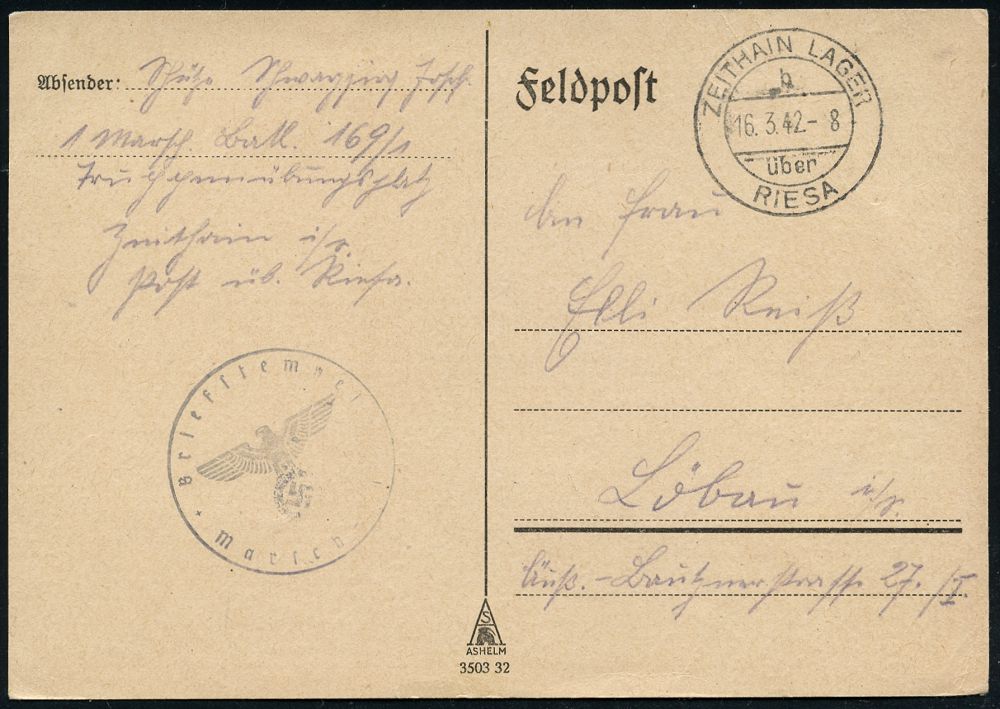 Absender: Schütze Schwarzzing Josef
1 Marsch. Batl. 169/1
Truppenübungsplatz
Zeithain i/S.
Post üb. Riesa.
Briefstempel
Marsch
ASHELM
3503 32
Feldpost
ZEITHAIN LAGER
b
16. 3.42.- 8
über
RIESA
An Frau
Elli Reiß
Löbau i/S.
Äuß. - Bautznerstrasse 27. /I.